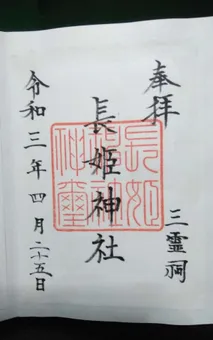 奉拝
三霊祠
長姫神社
長姫神社神璽
令和三年四月二十五日